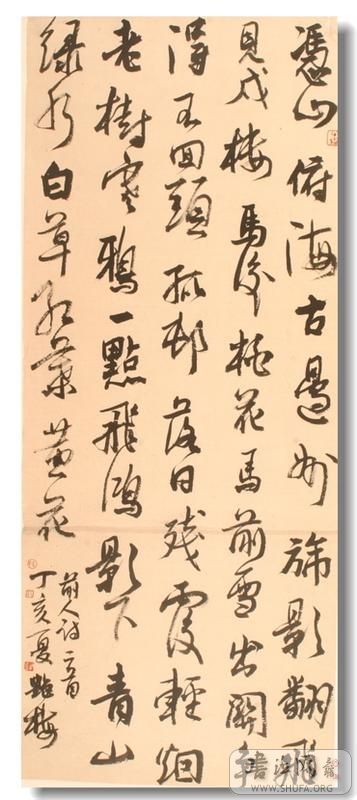 憑山俯海古邊州旆影翻
見戍樓馬後桃花馬前雪出關
得不回頭孤邨落日殘霞輕烟
老樹寒鴉一點飛鴻影下青山
綠水白草紅葉黃花
前人詩二首
丁亥夏
WWW.SHUFA.ORG